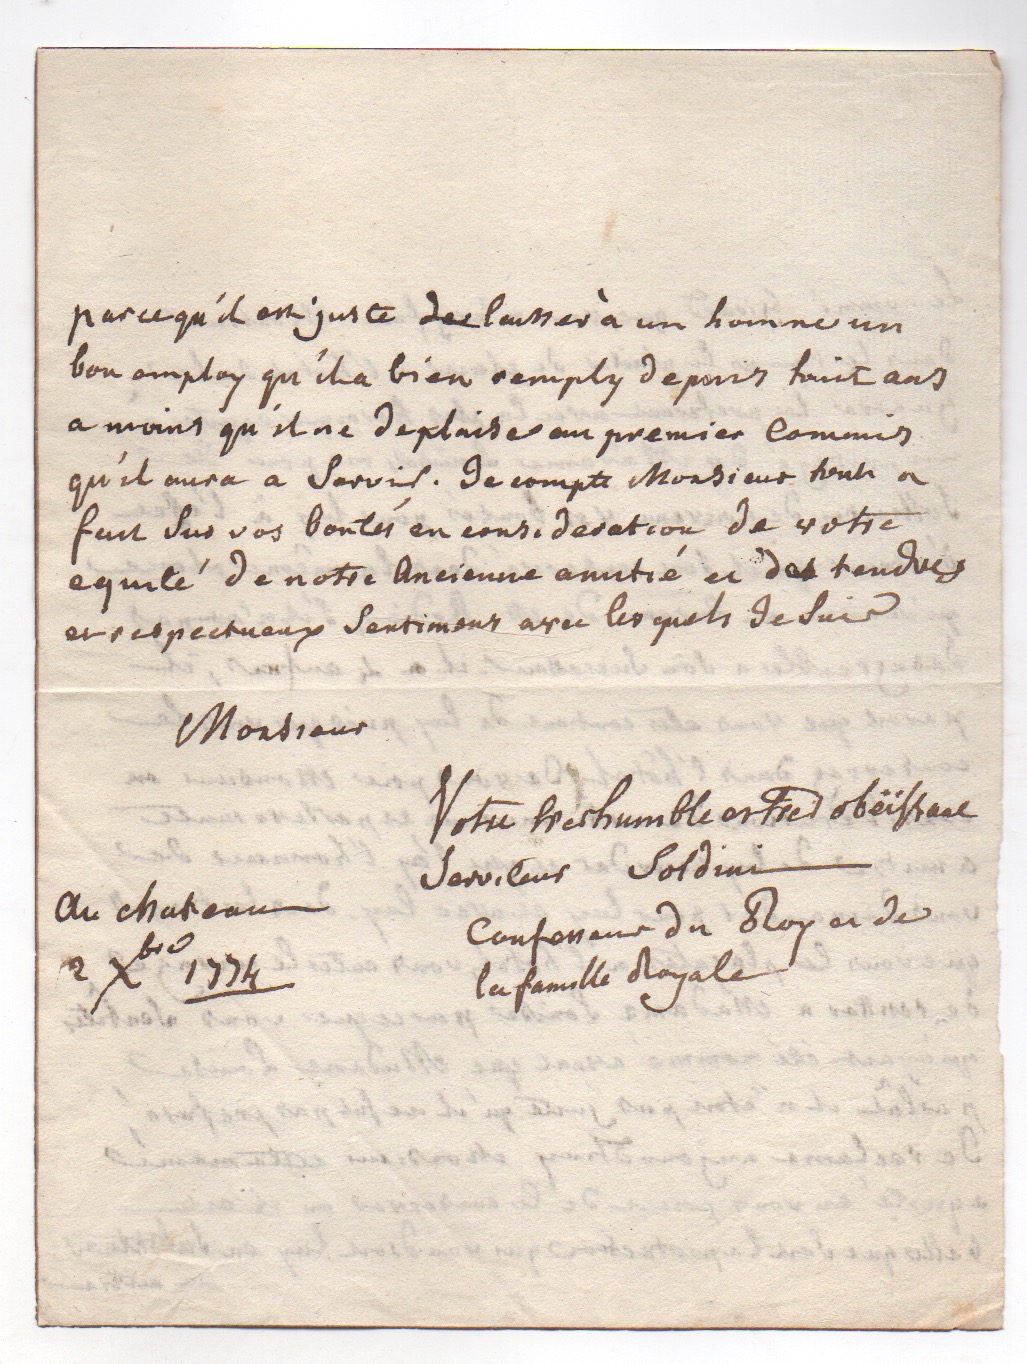 parcequ'il est juste de laisser à un homme un
bon employ qu'il a bien remply depuis huit ans
a moins qu'il ne deplaise au premier Commis
qu'il aura a Servir. Je compte Monsieur tout a
fait Sur vos bontés en consideration de votre
equité de notre Ancienne amitié et des tendres
et respectueux Sentimens avec lesquels Je Suis
Monsieur
Votre tres humble et tres obëissant
Serviteur Soldini
Confesseur du Roy et de
la famille Royale
Au chateau
2 Xbre 1774